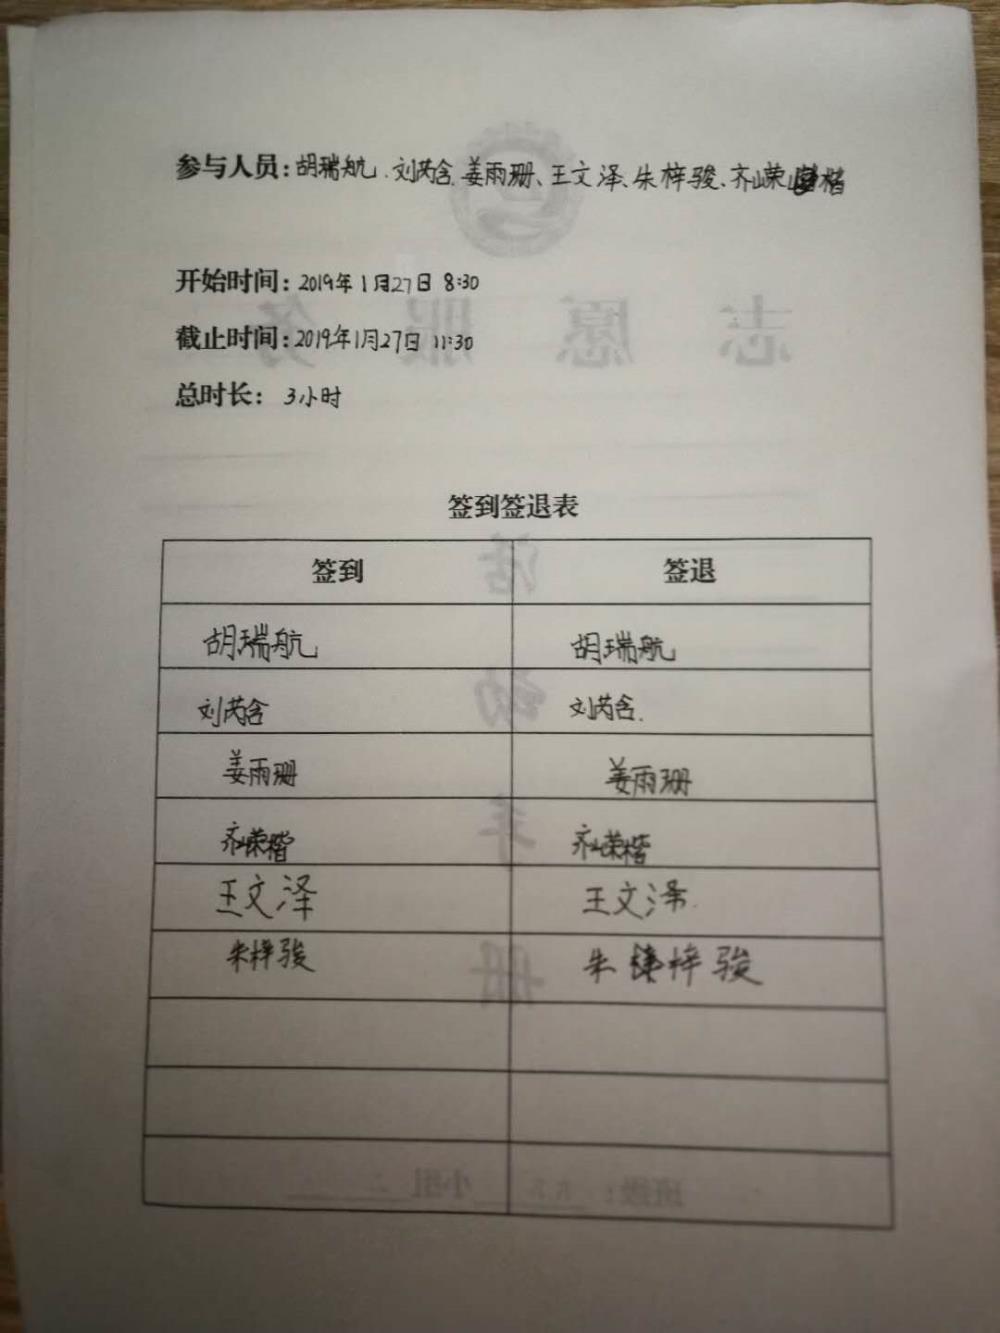 参与人员：胡瑞航、刘芮含、姜雨珊、王文泽、朱梓骏、齐嵘楷
开始时间：2019年1月27日 8:30
截止时间：2019年1月27日 11:30
总时长： 3小时
签到签退表
签到 签退
胡瑞航 胡瑞航
刘芮含 刘芮含.
姜雨珊 姜雨珊
齐嵘楷 齐嵘楷
王文泽 王文泽.
朱梓骏 朱梓骏